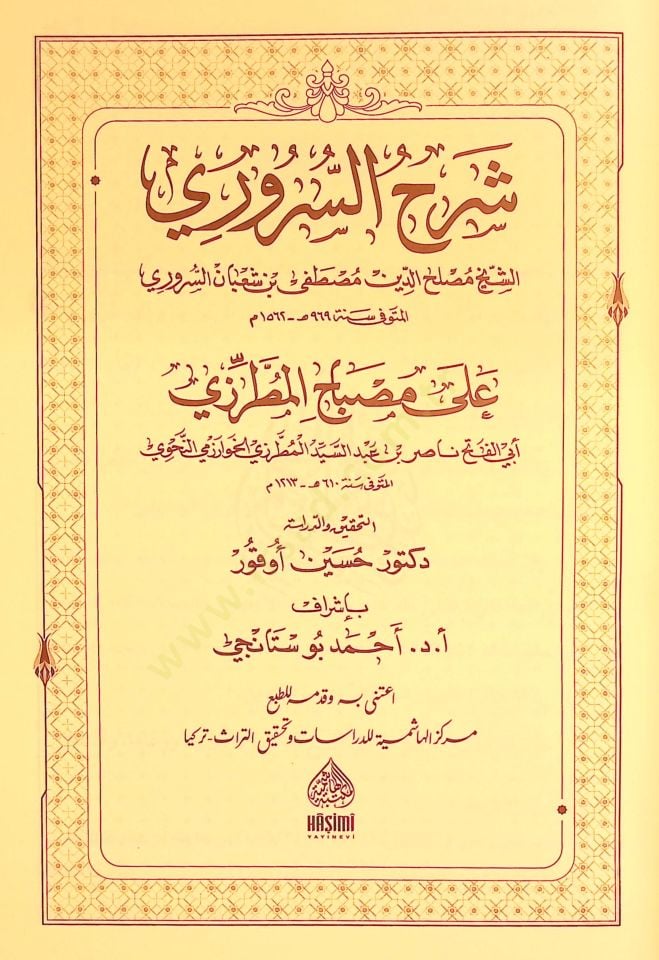 شَرْحُ السُّرُورِي
الشَّيْخ مُصْلِح الدِّين مُصْطَفَى بْن شَعْبَان السُّرُورِي
المتوفى سنة ٩٦٩هـ - ١٥٦٢م
عَلَى مِصْبَاحِ المُطَرِّزِي
أبي الفَتْح نَاصِر بن عَبْد السَيِّد المُطَرِّزِي الخَوَارَزمِي النَّحْوِي
المتوفى سنة ٦١٠هـ - ١٢١٣م
التحقيق والدراسة
دكتور حُسَيْن أُوقُور
بإشراف
أ.د. أَحْمَد بُوسْتَانْجِي
اعتنى به وقدمه للطبع
مركز الهاشمية للدراسات وتحقيق التراث - تركيا
HÂŞİMÎ
YAYINEVİ